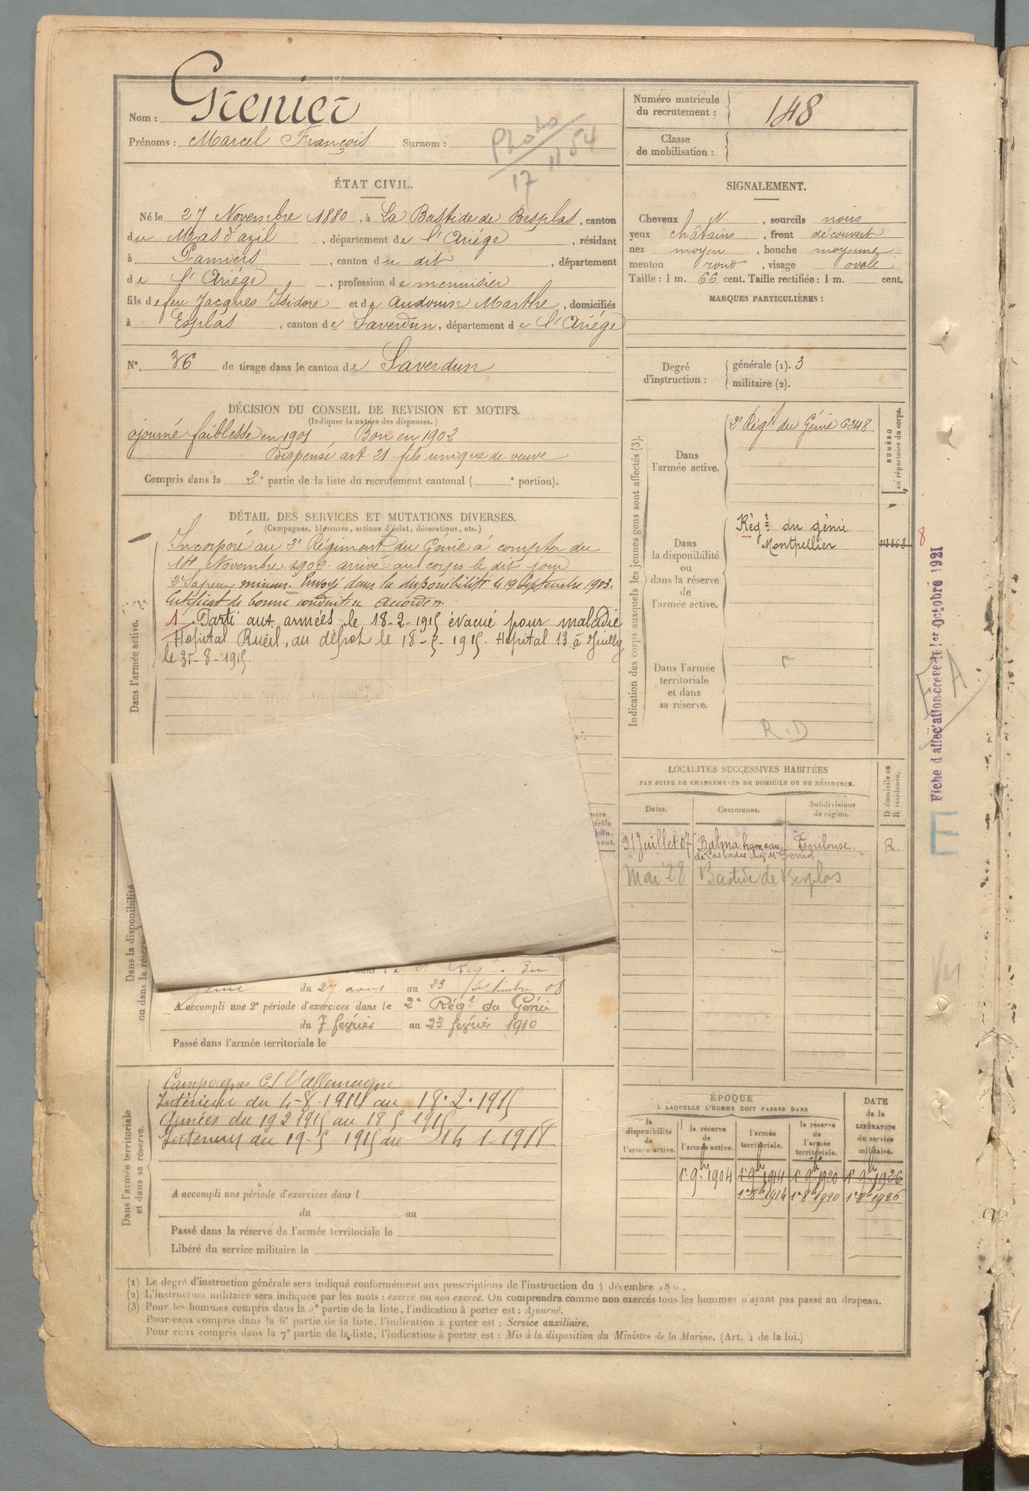 Nom : Grenier
Prénoms : Marcel François Surnom :
Photo
17 11 54
Numéro matricule
du recrutement : 148
Classe
de mobilisation :
ÉTAT CIVIL.
Né le 27 Novembre 1880, à La Bastide de Besplas, canton
du Mas d'azil, département de l'Ariége, résidant
à Pamiers, canton du dit, département
de l'Ariége, profession de menuisier
fils de feu Jacques Isidore et de Audouin Marthe, domiciliés
à Esplas, canton de Saverdun, département de l'Ariége
N° 36 de tirage dans le canton de Saverdun
SIGNALEMENT.
Cheveux N, sourcils noirs
yeux châtains, front découvert
nez moyen, bouche moyenne
menton rond, visage ovale
Taille : 1 m. 66 cent. Taille rectifiée : 1 m. cent.
MARQUES PARTICULIÈRES :
Degré
d'instruction :
générale (1). 3
militaire (2).
DÉCISION DU CONSEIL DE REVISION ET MOTIFS.
(Indiquer la nature des dispenses.)
ajourné faiblesse en 1901 Bon en 1902
Dispensé art 21 fils unique de veuve
Compris dans la 2e partie de la liste du recrutement cantonal ( e portion).
DÉTAIL DES SERVICES ET MUTATIONS DIVERSES.
(Campagnes, blessures, actions d'éclat, décorations, etc.)
Dans l'armée active.
Incorporé au 2e Régiment du Génie à compter du
Novembre arrivé au corps le dit jour
2e Sapeur mineur. Envoyé dans la disponibilité le 19 Septembre 1903.
Certificat de bonne conduite accordé.
1 Parti aux armées le 18-2-1915 évacué pour maladie
Hôpital Rueil, au dépôt le 18-5-1915. Hôpital 13 à Juilly
le 31-8-1915.
Indication des corps auxquels les jeunes gens sont affectés (3).
Dans
l'armée active.
2e Régt du Génie 6248
NUMÉRO
au répertoire du corps.
Dans
la disponibilité
ou
dans la réserve
de
l'armée active.
Régt du génie
Montpellier
8
Dans l'armée
territoriale
et dans
sa réserve.
R.D
Fiche d'affectation créée le 1er Octobre 1921
E
LOCALITÉS SUCCESSIVES HABITÉES
PAR SUITE DE CHANGEMENTS DE DOMICILE OU DE RÉSIDENCE.
Dates. Communes. Subdivisions
de région.
D domicile ou
R résidence.
31 Juillet 07 Balma hameau Toulouse R.
Mai 28 Bastide de Besplas
Dans la disponibilité
ou dans la réserve
du 27 avril au 23
A accompli une 2e période d'exercices dans le 2e Régt du Génie
du 7 février au 23 février 1910
Passé dans l'armée territoriale le
Dans l'armée territoriale
et dans sa réserve.
Campagnes Cs l'allemagne
Intérieur du 4-8-1914 au 18.2.1915
Armées du 19 2 1915 au 18 5 1915
Intérieur du 19-5-1915 au 14 1-1918
A accompli une période d'exercices dans l
du au
Passé dans la réserve de l'armée territoriale le
Libéré du service militaire le
ÉPOQUE
À LAQUELLE L'HOMME DOIT PASSER DANS
la
disponibilité
de
l'armée active.
la réserve
de
l'armée active.
l'armée
territoriale.
la réserve
de
l'armée
territoriale.
DATE
de la
LIBÉRATION
du service
militaire.
1r 9bre 1904 1r 9bre 1914 1r 9bre 1920 1r 9bre 1926
(1) Le degré d'instruction générale sera indiqué conformément aux prescriptions de l'instruction du 4 décembre
(2) L'instruction militaire sera indiquée par les mots : exercé ou non exercé. On comprendra comme non exercés tous les hommes n'ayant pas passé au drapeau.
(3) Pour les hommes compris dans la 5e partie de la liste, l'indication à porter est : Ajourné.
Pour ceux compris dans la 6e partie de la liste, l'indication à porter est : Service auxiliaire.
Pour ceux compris dans la 7e partie de la liste, l'indication à porter est : Mis à la disposition du Ministre de la Marine. (Art. 4 de la loi.)